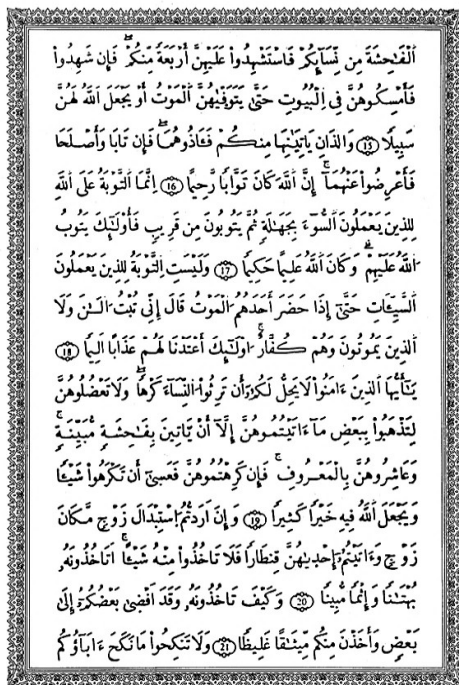 اَ۬لْفَٰحِشَةَ مِن نِّسَآئِكُمْ فَاسْتَشْهِدُواْ عَلَيْهِنَّ أَرْبَعَةٗ مِّنكُمْۖ فَإِن شَهِدُواْ
فَأَمْسِكُوهُنَّ فِے اِ۬لْبُيُوتِ حَتَّىٰ يَتَوَفّ۪يٰهُنَّ اَ۬لْمَوْتُ أَوْ يَجْعَلَ اَ۬للَّهُ لَهُنَّ
سَبِيلاٗ 15 وَالذَٰنِ يَاتِيَٰنِهَا مِنكُمْ فَـَٔاذُوهُمَاۖ فَإِن تَابَا وَأَصْلَحَا
فَأَعْرِضُواْ عَنْهُمَآۖ إِنَّ اَ۬للَّهَ كَانَ تَوَّاباٗ رَّحِيماً 16 اِنَّمَا اَ۬لتَّوْبَةُ عَلَى اَ۬للَّهِ
لِلذِينَ يَعْمَلُونَ اَ۬لسُّوٓءَ بِجَهَٰلَةٖ ثُمَّ يَتُوبُونَ مِن قَرِيبٖ فَأُوْلَٰٓئِكَ يَتُوبُ
اُ۬للَّهُ عَلَيْهِمْۖ وَكَانَ اَ۬للَّهُ عَلِيماً حَكِيماٗ 17 وَلَيْسَتِ اِ۬لتَّوْبَةُ لِلذِينَ يَعْمَلُونَ
اَ۬لسَّيِّـَٔاتِ حَتَّىٰٓ إِذَا حَضَرَ أَحَدَهُمُ اُ۬لْمَوْتُ قَالَ إِنِّے تُبْتُ اُ۬لَٰنَ وَلَا
اَ۬لذِينَ يَمُوتُونَ وَهُمْ كُفَّارٌۖ ا۟وْلَٰٓئِكَ أَعْتَدْنَا لَهُمْ عَذَاباً اَلِيماٗ 18
يَٰٓأَيُّهَا اَ۬لذِينَ ءَامَنُواْ لَا يَحِلُّ لَكُمُۥٓ أَن تَرِثُواْ اُ۬لنِّسَآءَ كَرْهاٗۖ وَلَا تَعْضُلُوهُنَّ
لِتَذْهَبُواْ بِبَعْضِ مَآ ءَاتَيْتُمُوهُنَّ إِلَّآ أَنْ يَّاتِينَ بِفَٰحِشَةٖ مُّبَيِّنَةٖۖ
وَعَاشِرُوهُنَّ بِالْمَعْرُوفِۖ فَإِن كَرِهْتُمُوهُنَّ فَعَس۪ىٰٓ أَن تَكْرَهُواْ شَيْـٔاٗ
وَيَجْعَلَ اَ۬للَّهُ فِيهِ خَيْراٗ كَثِيراٗ 19 وَإِنَ اَرَدتُّمُ اُ۪سْتِبْدَالَ زَوْجٖ مَّكَانَ
زَوْجٖ وَءَاتَيْتُمُۥٓ إِحْد۪يٰهُنَّ قِنطَاراٗ فَلَا تَاخُذُواْ مِنْهُ شَيْـٔاًۖ اَتَاخُذُونَهُۥ
بُهْتَٰناٗ وَإِثْماٗ مُّبِيناٗ 20 وَكَيْفَ تَاخُذُونَهُۥ وَقَدَ اَفْض۪ىٰ بَعْضُكُمُۥٓ إِلَىٰ
بَعْضٖ وَأَخَذْنَ مِنكُم مِّيثَٰقاً غَلِيظاٗ 21 وَلَا تَنكِحُواْ مَا نَكَحَ ءَابَآؤُكُم